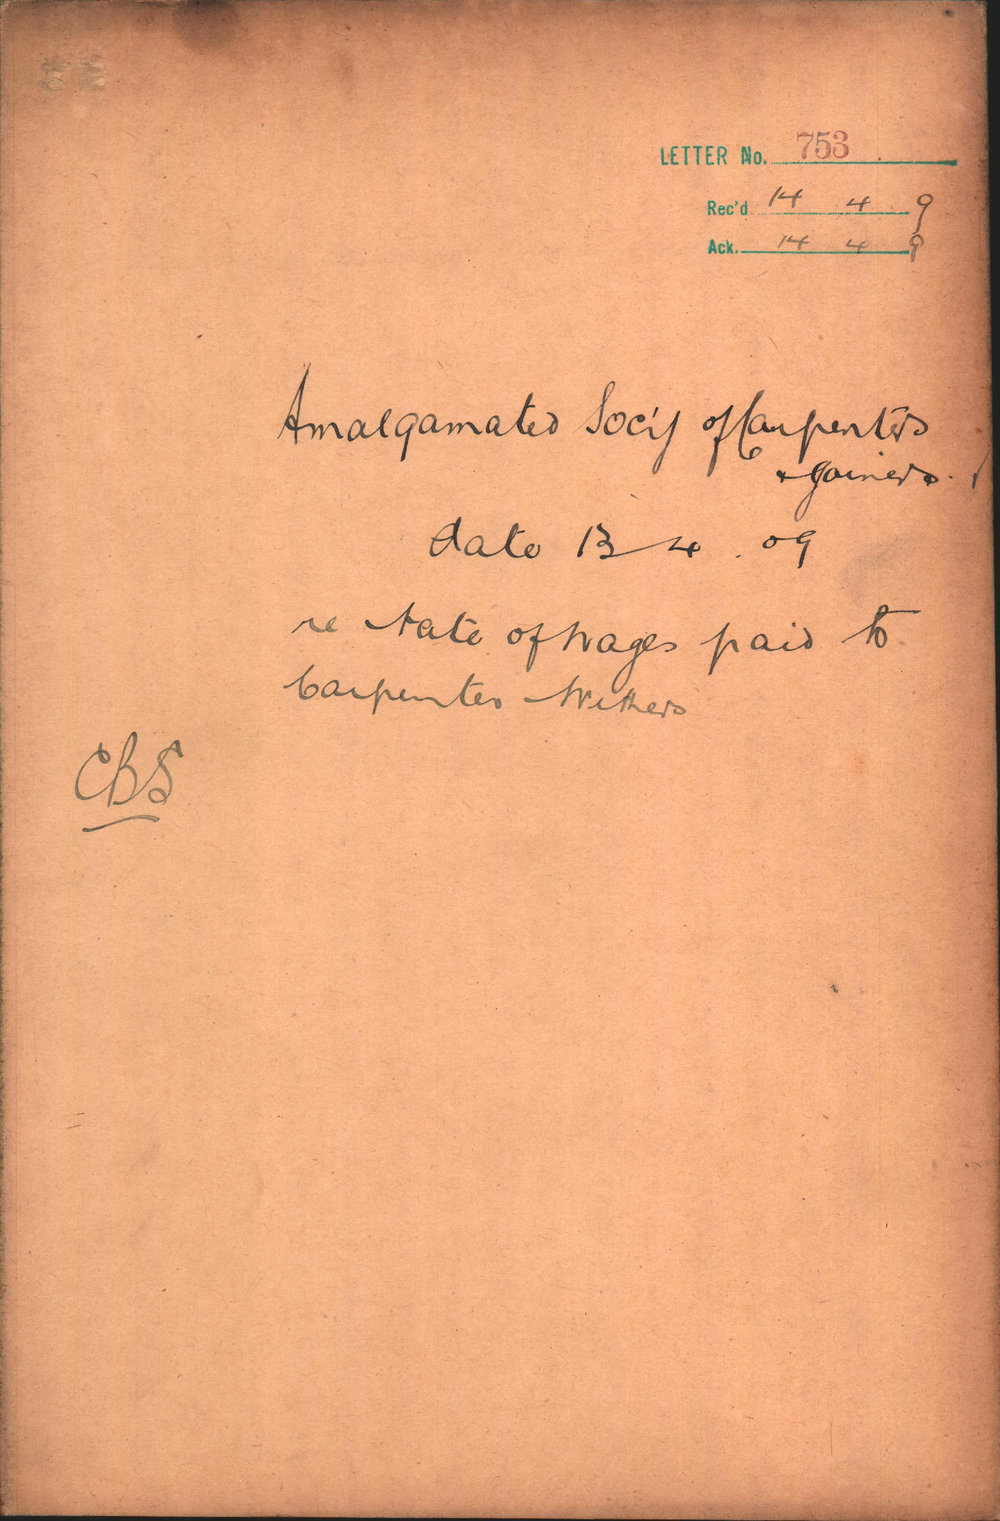 LETTER No. 753
Rec'd 14 4 9
Ack. 14 4 9
Amalgamated Soc'y of Carpenters
& Joiners.
date 13 4 . 09
re rate of wages paid to
Carpenter Withers
CBS